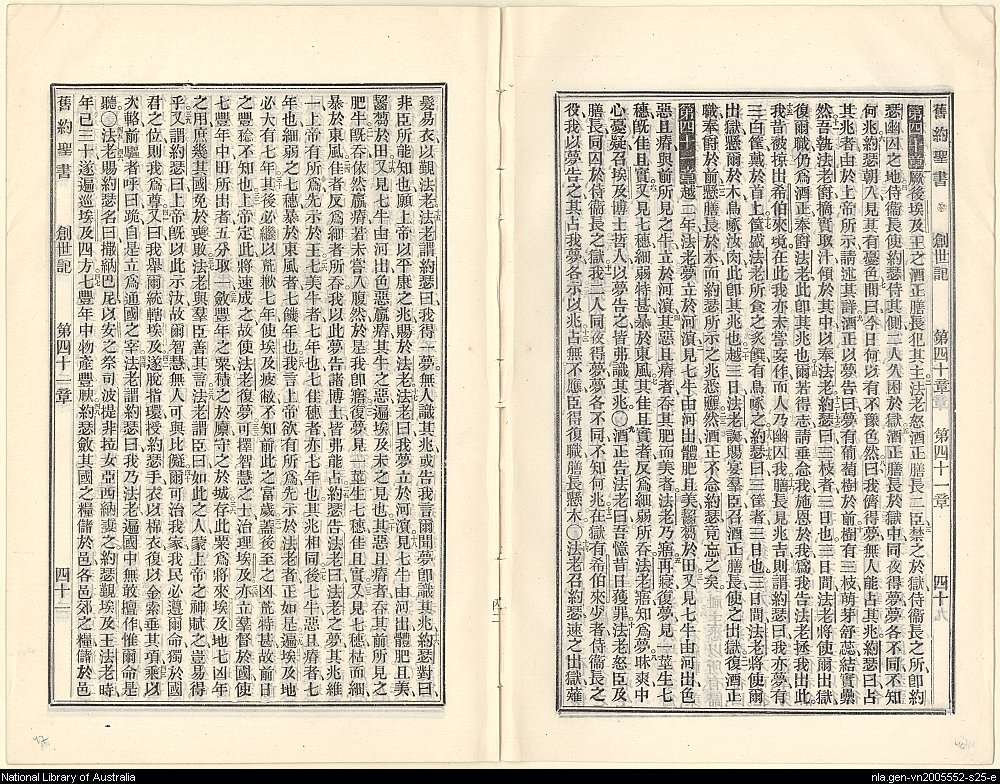 舊約聖書 創世記 第四十章 第四十一章 四十九
第四十章厥後埃及王之酒正膳長犯其主法老怒酒正膳長二臣禁之於獄侍衞長之所卽約
瑟幽囚之地侍衞長使約瑟侍其側二人久困於獄酒正膳長於獄中同夜得夢夢各不同不知
何兆約瑟朝入見其有憂色問曰今日何以有不豫色然曰我儕得夢無人能占其兆約瑟曰占
其兆者由於上帝所示請述其詳酒正以夢告曰夢有葡萄樹於前樹有三枝萌芽舒蕊結實纍
然吾執法老爵摘實取汁傾於其中以奉法老約瑟曰三枝者三日也三日間法老將使爾出獄
復爾職仍爲酒正奉爵法老此卽其兆也爾若得志請垂念我施恩於我爲我告法老拯我出此
我昔被掠出希伯來境在此我亦未嘗妄作而人乃幽囚我膳長見兆吉則謂約瑟曰我亦夢有
三白筐戴於首上筐藏法老所食之炙饌有鳥啄之約瑟曰三筐者三日也三日間法老將使爾
出獄懸爾於木鳥啄汝肉此卽其兆也越三日法老誕賜宴羣臣召酒正膳長使之出獄復酒正
職奉爵於前懸膳長於木而約瑟所示之兆悉應然酒正不念約瑟竟忘之矣
第四十一章越二年法老夢立於河濱見七牛由河出體肥且美齧芻於田又見七牛由河出色
惡且瘠與前所見之牛立於河濱其惡且瘠者吞其肥而美者法老乃寤再寢復夢見一莖生七
穗旣佳且實又見七穗細弱特甚暴於東風其佳且實者反爲細弱所吞法老寤知爲夢昧爽中
心憂疑召埃及博士哲人以夢告之皆弗識其兆〇酒正告法老曰吾憶昔日獲罪法老怒臣及
膳長同囚於侍衞長之獄我二人同夜得夢夢各不同不知何兆在獄有希伯來少者侍衞長之
役我以夢告之其占我夢各示以兆占無不應臣得復職膳長懸木〇法老召約瑟速之出獄薙
髮易衣以覲法老法老謂約瑟曰我得一夢無人識其兆或告我言爾聞夢卽識其兆約瑟對曰
非臣所能知也願上帝以平康之兆賜於法老法老曰我夢立於河濱見七牛由河出體肥且美
齧芻於田又見七牛由河出色惡羸瘠其牛之惡遍埃及未之見也其惡且瘠者吞其前所見之
肥牛旣吞依然羸瘠若未嘗入腹然於是我卽寤復夢見一莖生七穗佳且實又見七穗枯而細
暴於東風其佳者反爲細者所吞我以此夢告諸博士皆弗能占約瑟告法老曰法老之夢其兆維
一上帝有所爲先示於王七美牛者七年也七佳穗者亦七年也其兆相同後七牛惡且瘠者七
年也細弱之七穗暴於東風者七饑年也我言上帝欲有所爲先示於法老者正如是遍埃及地
必大有七年其後必繼以荒歉七年使埃及疲敝不知前此之富歲蓋後至之凶荒特甚故前日
之豐稔不知也上帝定此將速成之故使法老復夢可擇智慧之士治理埃及亦立羣督於國使
七豐年中田所出者五分取一斂豐年之粟積之於廩守之於城存此粟爲將來埃及地七凶年
之用庶幾其國免於喪敗法老與羣臣善其言法老謂臣曰如此之人蒙上帝之神賦之豈易得
乎又謂約瑟曰上帝旣以此示汝故爾智慧無人可與比儗爾可治我家我民必遵爾命獨於國
君之位則我爲尊又曰我舉爾統轄埃及遂脫指環授約瑟手衣以棉衣復以金索垂其項乘以
次輅前驅者呼曰跪自是立爲通國之宰法老謂約瑟曰我乃法老遍國中無敢擅作惟爾命是
聽〇法老賜約瑟名曰撒納巴尼以安之祭司波提非拉女亞西納妻之約瑟覲埃及王法老時
年已三十遂遍巡埃及四方七豐年中物產豐盛約瑟斂其國之糧儲於邑各邑郊之糧儲於邑
舊約聖書 創世記 第四十一章 四十
National Library of Australia
nla.gen-vn2005552-s25-e